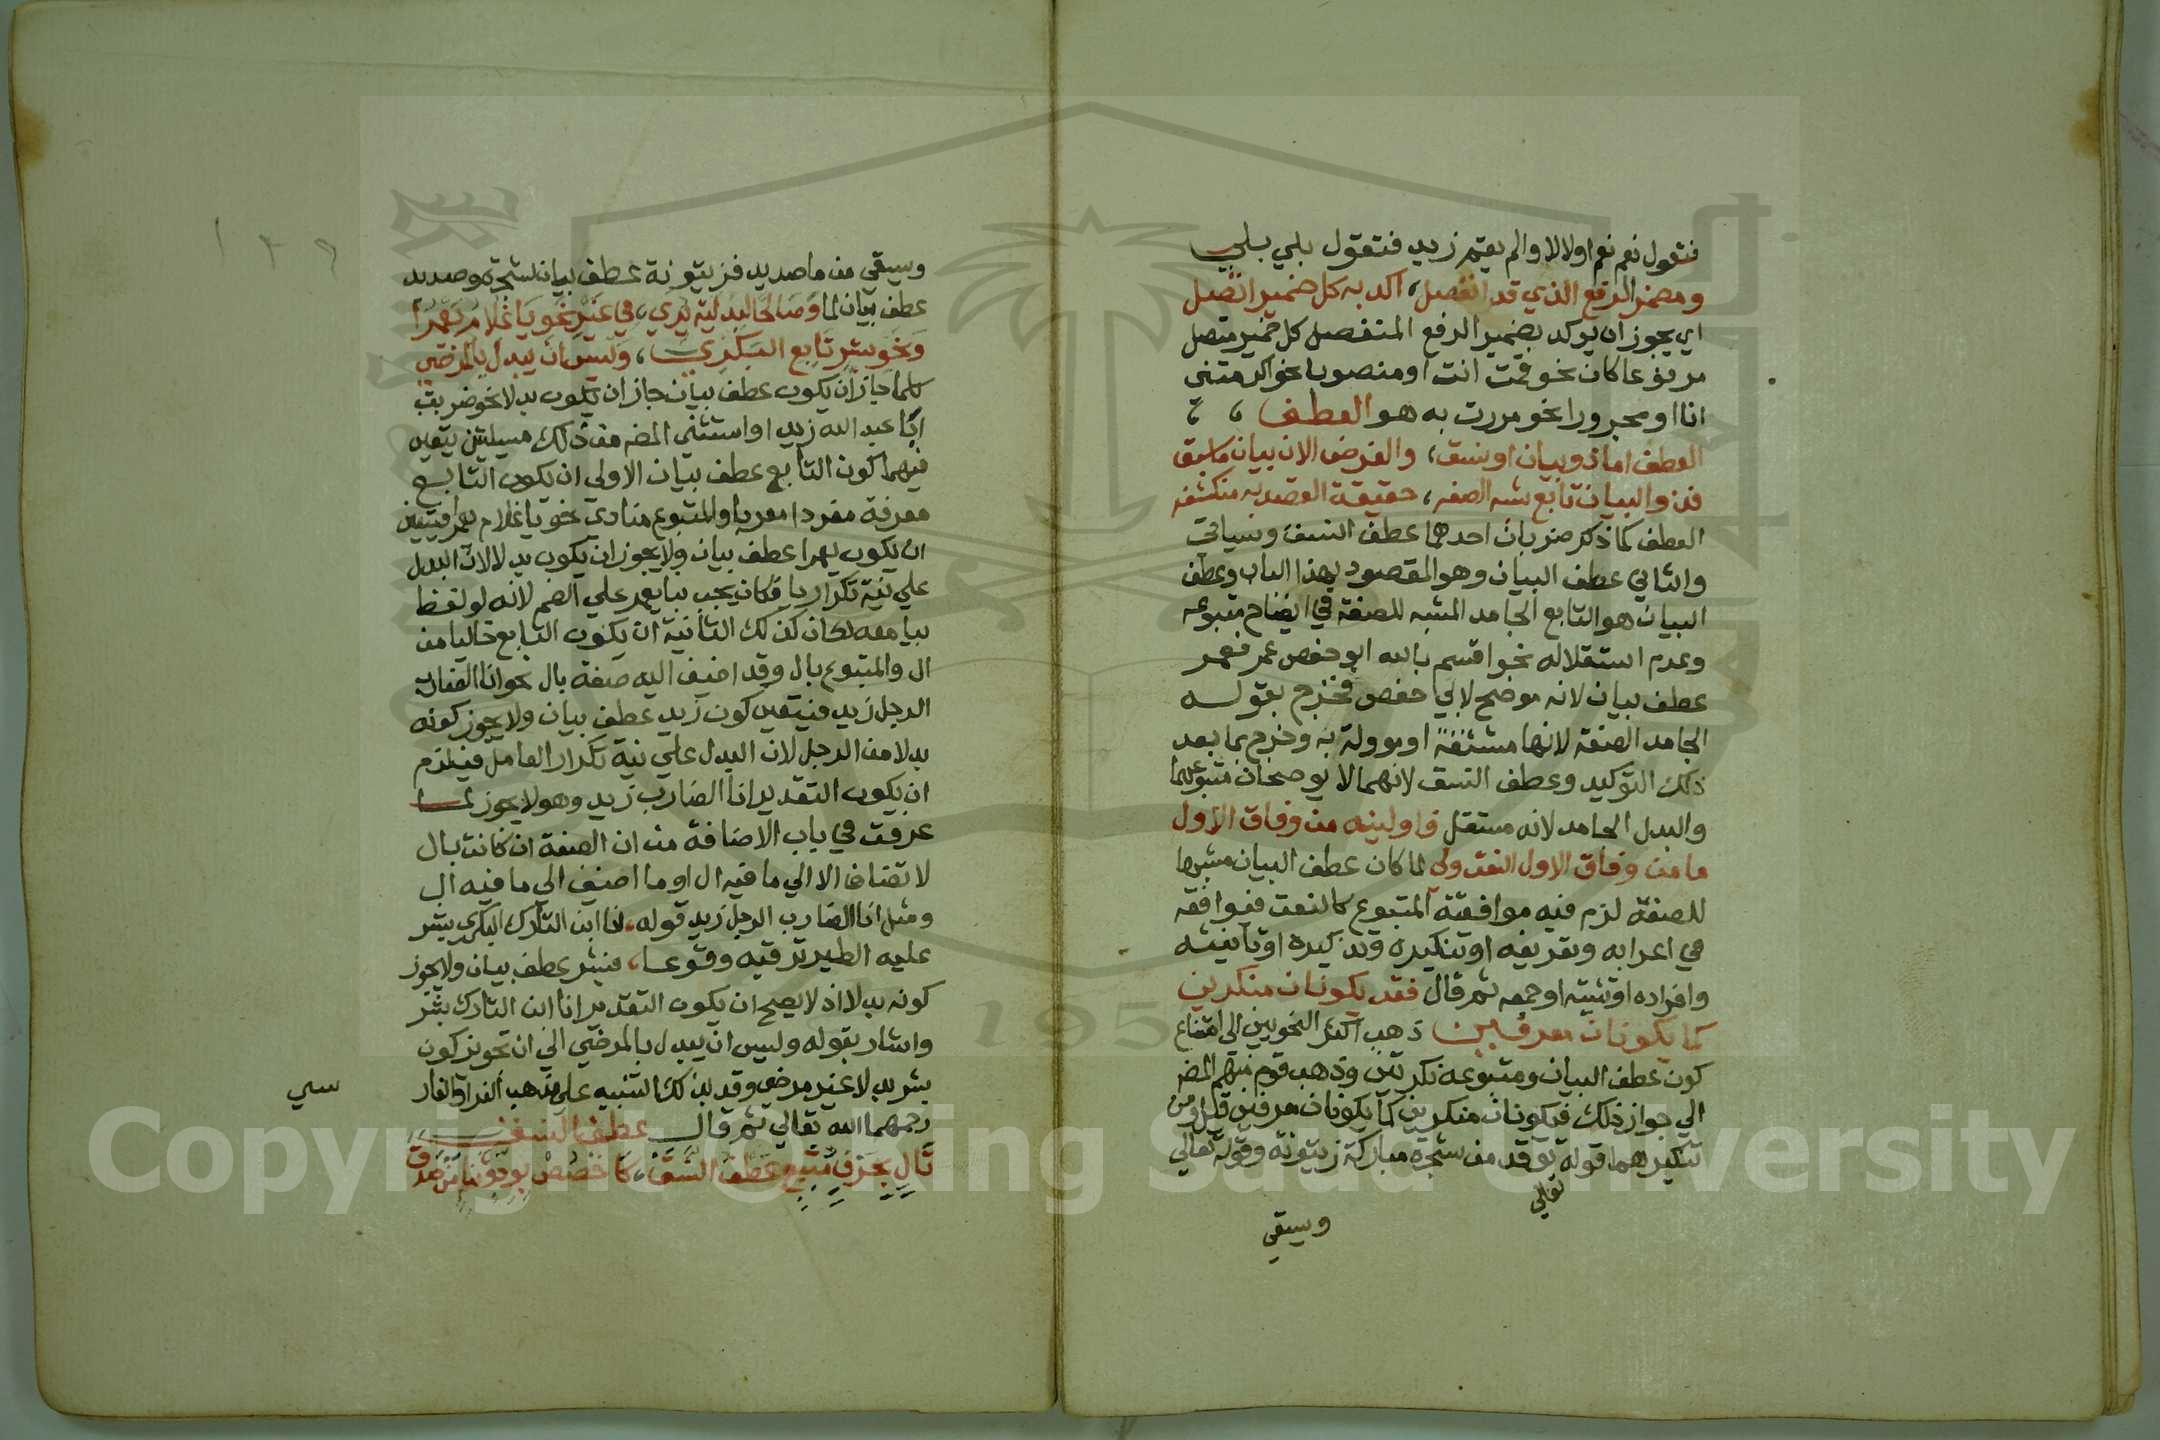 فتقول نعم نعم اولا لا والم يقم زيد فتقول بلي بلي
ومضمر الرفع الذي قد انفصل، اكد به كل ضمير اتصل
اي يجوز ان يوكد بضمير الرفع المنفصل كل ضمير متصل
مرفوعا كان نحو قمت انت او منصوبا نحو اكرمتني
انا او مجرورا نحو مررت به هو العطف
العطف اما ذو بيان او نسق، والغرض الان بيان ما سبق
فذو البيان تابع شبه الصفه، حقيقة القصد به منكشفه
العطف كما ذكر ضربان احدهما عطف النسق وسياتي
والثاني عطف البيان وهو المقصود بهذا الباب وعطف
البيان هو التابع الجامد المشبه للصفة في ايضاح متبوعه
وعدم استقلاله نحو اقسم بالله ابو حفص عمر فعمر
عطف بيان لانه موضح لابي حفص فخرج بقوله
الجامد الصفة لانها مشتقة او موولة به وخرج بما بعد
ذلك التوكيد وعطف النسق لانهما لا يوضحان متبوعهما
والبدل الجامد لانه مستقل فاولينه من وفاق الاول
ما من وفاق الاول النعت ولي لما كان عطف البيان مشبها
للصفة لزم فيه موافقة المتبوع كالنعت فيوافقه
في اعرابه وتعريفه او تنكيره وتذكيره او تانيثه
وافراده او تثنيته او جمعه ثم قال فقد يكونان منكرين
كما يكونان معرفين ذهب اكثر النحويين الي امتناع
كون عطف البيان ومتبوعه نكرتين وذهب قوم منهم المص
الي جواز ذلك فيكونان منكرين كما يكونان معرفين قيل ومن
تنكيرهما قوله توقد من شجرة مباركة زيتونة وقوله تعالي
تعالي
ويسقي
١٢٩
ويسقي من ما صديد فزيتونة عطف بيان لشجرة وصديد
عطف بيان لما وصالحا لبدلية يري، في غير نحو يا غلام يعمرا
ونحو بشر تابع البكري، وليس ان يبدل بالمرضي
كلما جاز ان يكون عطف بيان جاز ان يكون بدلا نحو ضربت
ابا عبد الله زيدا واستثني المص من ذلك مسيلتين يتعين
فيهما كون التابع عطف بيان الاولي ان يكون التابع
معرفة مفردا معربا والمتبوع منادي نحو يا غلام يعمرا فيتعين
ان يكون يعمرا عطف بيان ولا يجوز ان يكون بدلا لان البدل
علي نية تكرار يا فكان يجب بنا يعمر علي الضم لانه لو لفظ
بيا معه لكان كذلك الثانية ان يكون التابع خاليا من
ال والمتبوع بال وقد اضيف اليه صفة بال نحو انا الضارب
الرجل زيد فيتعين كون زيد عطف بيان ولا يجوز كونه
بدلا من الرجل لان البدل علي نية تكرار العامل فيلزم
ان يكون التقدير انا الضارب زيد وهو لا يجوز لما
عرفت في باب الاضافة من ان الصفة ان كانت بال
لا تضاف الا الي ما فيه ال او ما اضيف الي ما فيه ال
ومثل انا الضارب الرجل زيد قوله، انا ابن التارك البكري بشر
عليه الطير ترقبه وقوعا، فبشر عطف بيان ولا يجوز
كونه بدلا اذ لا يصح ان يكون التقدير انا ابن التارك بشر
واشار بقوله وليس ان يبدل بالمرضي الي ان تجويز كون
بشر بدلا غير مرضي وقصد بذلك التنبيه علي مذهب الفرا والفار
سي
رحمهما الله تعالي ثم قال عطف النسق
تال بحرف متبع عطف النسق، كاخصص بود وثنا من صدق